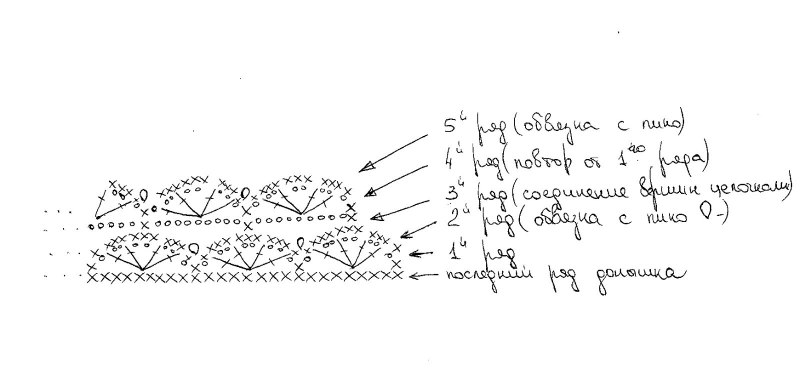 5й ряд (обвязка с пико)
4й ряд (повтор от 1го ряда)
3й ряд (соединение вершин цепочками)
2й ряд (обвязка с пико О-)
1й ряд
последний ряд донышка